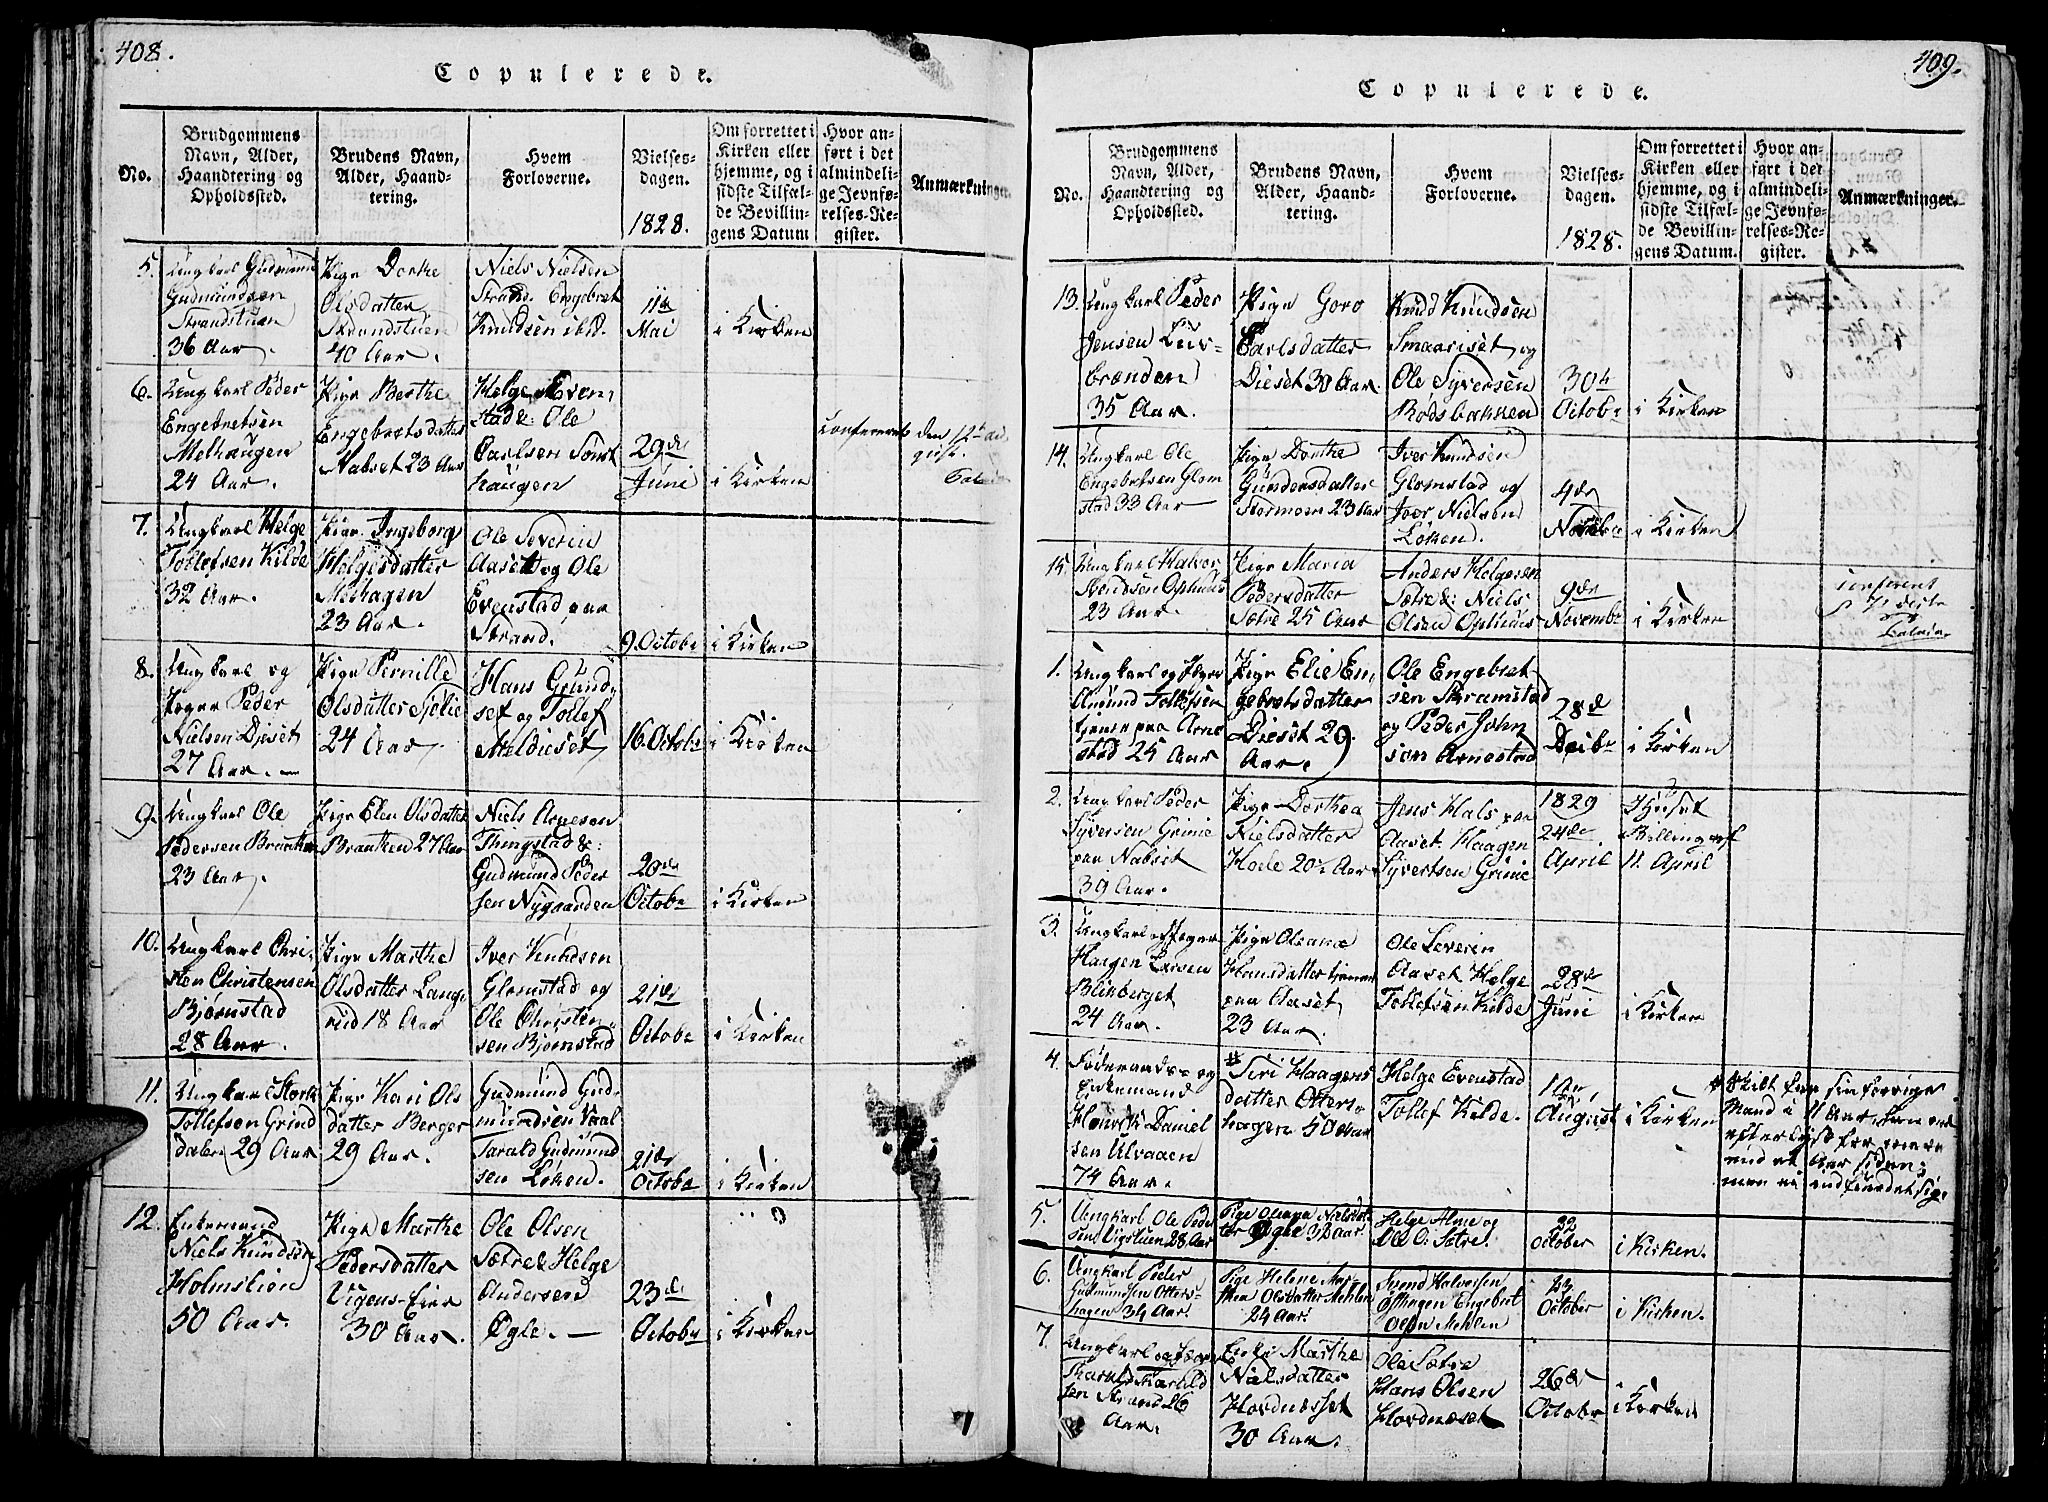 408.
Copulerede.
No.
Brudgommens
Navn, Alder,
Haandtering og
Opholdssted.
Brudens Navn,
Alder, Haand-
tering.
Hvem
Forloverne.
Vielses-
dagen.
1828.
Om forrettet i
Kirken eller
hjemme, og i
sidste Tilfæl-
de Bevillin-
gens Datum
Hvor an-
ført i det
almindeli-
ge Jevnfø-
relses-Re-
gister.
Anmærkninger
5.
Ungkarl Gudmund
Gudmundsen
Strandstuen
36 Aar.
Pige Dorthe
Olsdatter
Strandstuen
40 Aar.
Niels Nielsen
Strand. Engebret
Knudsen ibid.
11te
Mai
i Kirken
6.
Ungkarl Peder
Engebretsen
Melhaugen
24 Aar.
Pige Berthe
Engebretsdatter
Nabset 23 Aar
Helge Even-
stad & Ole
Carlsen
haugen
29de
Juni
i Kirken
confereret den 12t au
gust.
7.
Ungkarl Helge
Tollefsen Kilde
32 Aar.
Pige Ingeborg
Helgesdatter
Melhagen
23 Aar.
Ole Severin
Aaset og Ole
Evenstad paa
Strand.
9. Octobr
i Kirken
8.
Ungkarl og
Jæger Peder
Nielsen Djeset
27 Aar. —
Pige Pernille
Olsdatter Sjølie
24 Aar.
Hans Grund-
set og Tollef
Meldieset
16. Octobr
i Kirken
9.
Ungkarl Ole
Pedersen Braathen
23 Aar.
Pige Elen Olsdatter
Braathen 27 Aar
Niels Arnesen
Thingstad &
Gudmund Peder
sen Nygaarden
20de
Octobr
i Kirken
10.
Ungkarl Chri-
sten Christensen
Bjørnstad
28 Aar.
Pige Marthe
Olsdatter Lang-
rud 18 Aar
Iver Knudsen
Glomstad og
Ole Christen-
sen Bjørnstad
21de
Octobr
i Kirken
11.
Ungkarl Stork
Tollefsen Grind
dalen 29 Aar
Pige Kari Ols
datter Berger
29 Aar.
Gudmund Gud-
mundsen Vaal
Tarald Gudmund
sen Løken.
21de
Octobr
i Kirken
12.
Enkemand
Niels Knudsen
Holmslien
50 Aar.
Pige Marthe
Pedersdatter
Vigens-Eier
30 Aar.
Ole Olsen
Sætre & Helge
Andersen
Øgle. —
23de
Octobr
i Kirken
409.
Copulerede.
No.
Brudgommens
Navn, Alder,
Haandtering og
Opholdssted.
Brudens Navn,
Alder, Haand-
tering.
Hvem
Forloverne.
Vielses-
dagen.
1828.
Om forrettet i
Kirken eller
hjemme, og i
sidste Tilfæl-
de Bevillin-
gens Datum.
Hvor an-
ført i det
almindeli-
ge Jevnfø-
relses-Re-
gister.
Anmærkninger.
13.
Ungkarl Peder
Jensen
brænden
35 Aar.
Pige Goro
Carlsdatter
Dieset 30 Aar.
Knud Knudsen
Smaariset og
Ole Syversen
Rødsbakken
30te
Octobr
i Kirken
14.
Ungkarl Ole
Engebretsen Glom
stad 33 Aar
Pige Dorthe
Gundersdatter
Stormoen 23 Aar
Iver Knudsen
Glomstad og
Iver Nielsen
Løken.
4de
Novebr
i Kirken
15.
Ungkarl Halvor
Svendsen Ophuus
23 Aar.
Pige Maria
Pedersdatter
Sætre 25 Aar
Anders Helgesen
Sætre & Niels
Olsen Ophuus
9de
Novembr
i Kirken
conferent
1.
Ungkarl og Jæger
Amund Tollefsen
tjener paa Arne
stad 25 Aar
Pige Elie En-
gebretsdatter
Dieset 29
Aar.
Ole Engebret
sen Skramstad
og Peder John
sen Arnestad
28de
Decbr
i Kirken
2.
Ungkarl Peder
Syversen Grinie
paa Nabset
39 Aar.
Pige Dorthea
Nielsdatter
Hoele 20½ Aar
Jens Hals paa
Aaset. Haagen
Syvertsen Grinie
1829
24de
April
I Huset
Billing af
11. April
3.
Ungkarl og Jæger
Haagen Larsen
Blikberget
24 Aar.
Pige Oleana
Hansdatter tjener
paa Aaset
23 Aar.
Ole Severin
Aaset Helge
Tollefsen Kilde
28de
Juni
i Kirken
4.
Føderaads- og
Enkemand
Henrik Daniel
sen Ulvaaen
74 Aar.
# Siri Haagens
datter Otters-
hagen 50 Aar
Helge Evenstad
Tollef Kilde.
1ste
August
i Kirken
# Skilt fra sin forrige
Mand i 11 Aar, han er
efterlyst for mere
end et Aar siden;
men ei indfundet sig.
5.
Ungkarl Ole Peder
sen Vigstuen 28 Aar
Pige Oleana Nielsdat
ter Øgle 32 Aar.
Helge Alme og
Ole O: Sætre.
22
October
i Kirken.
6.
Ungkarl Peder
Gudmundsen Otters-
hagen 34 Aar.
Pige Helene Mar-
thea Olsdatter Mehlen
24 Aar.
Svend Halvorsen
Østhagen Engebret
Olsen Mehlen
23
October
i Kirken.
7.
Ungkarl og Jæger
Tharald Tharald
sen Strand 26
Aar.
Enke Marthe
Nielsdatter
Hovdnæsset
30 Aar.
Ole Sætre
Hans Olsen
Hovdnæset
26de
Octobr
i Kirken